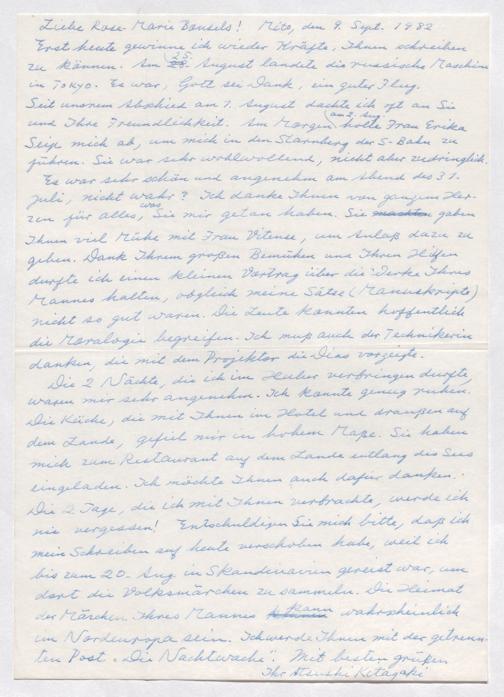 Liebe Rose-Marie Bonsels! Mito, den 9. Sept. 1982
Erst heute gewinne ich wieder Kräfte, Ihnen schreiben
zu können. Am 25. August landete die russische Maschine
in Tokyo. Es war, Gott sei Dank, ein guter Flug.
Seit unserem Abschied am 1. August dachte ich oft an Sie
und Ihre Freundlichkeit. Am Morgen am 2. Aug. holte Frau Erika
Seip mich ab, um mich in den Starnberg der S-Bahn zu
führen. Sie war sehr wohlwollend, nicht aber zudringlich.
Es war sehr schön und angenehm am Abend des 31.
Juli, nicht wahr? Ich danke Ihnen von ganzem Her-
zen für alles, was Sie mir getan haben. Sie machten gaben
Ihnen viel Mühe mit Frau Vitense, um Anlaß dazu zu
geben. Dank Ihrem großen Bemühen und Ihren Hilfen
durfte ich einen kleinen Vortrag über die Werke Ihres
Mannes halten, obgleich meine Sätze (Manuskripte)
nicht so gut waren. Die Leute konnten hoffentlich
die Moralogie begreifen. Ich muß auch der Technikerin
danken, die mit dem Projektor die Dias vorzeigte.
Die 2 Nächte, die ich im Huber verbringen durfte,
waren mir sehr angenehm. Ich konnte genug ruhen.
Die Küche, die mit Ihnen im Hotel und draußen auf
dem Lande, gefiel mir in hohem Maße. Sie haben
mich zum Restaurant auf dem Lande entlang des Sees
eingeladen. Ich möchte Ihnen auch dafür danken.
Die 2 Tage, die ich mit Ihnen verbrachte, werde ich
nie vergessen! Entschuldigen Sie mich bitte, daß ich
mein Schreiben auf heute verschoben habe, weil ich
bis zum 20. Aug. in Skandinavien gereist war, um
dort die Volksmärchen zu sammeln. Die Heimat
der Märchen Ihres Mannes kann wahrscheinlich
im Nordeuropa sein. Ich werde Ihnen mit der getrenn-
ten Post „Die Nachtwache". Mit besten grüßen
Ihr Atsushi Kitagaki